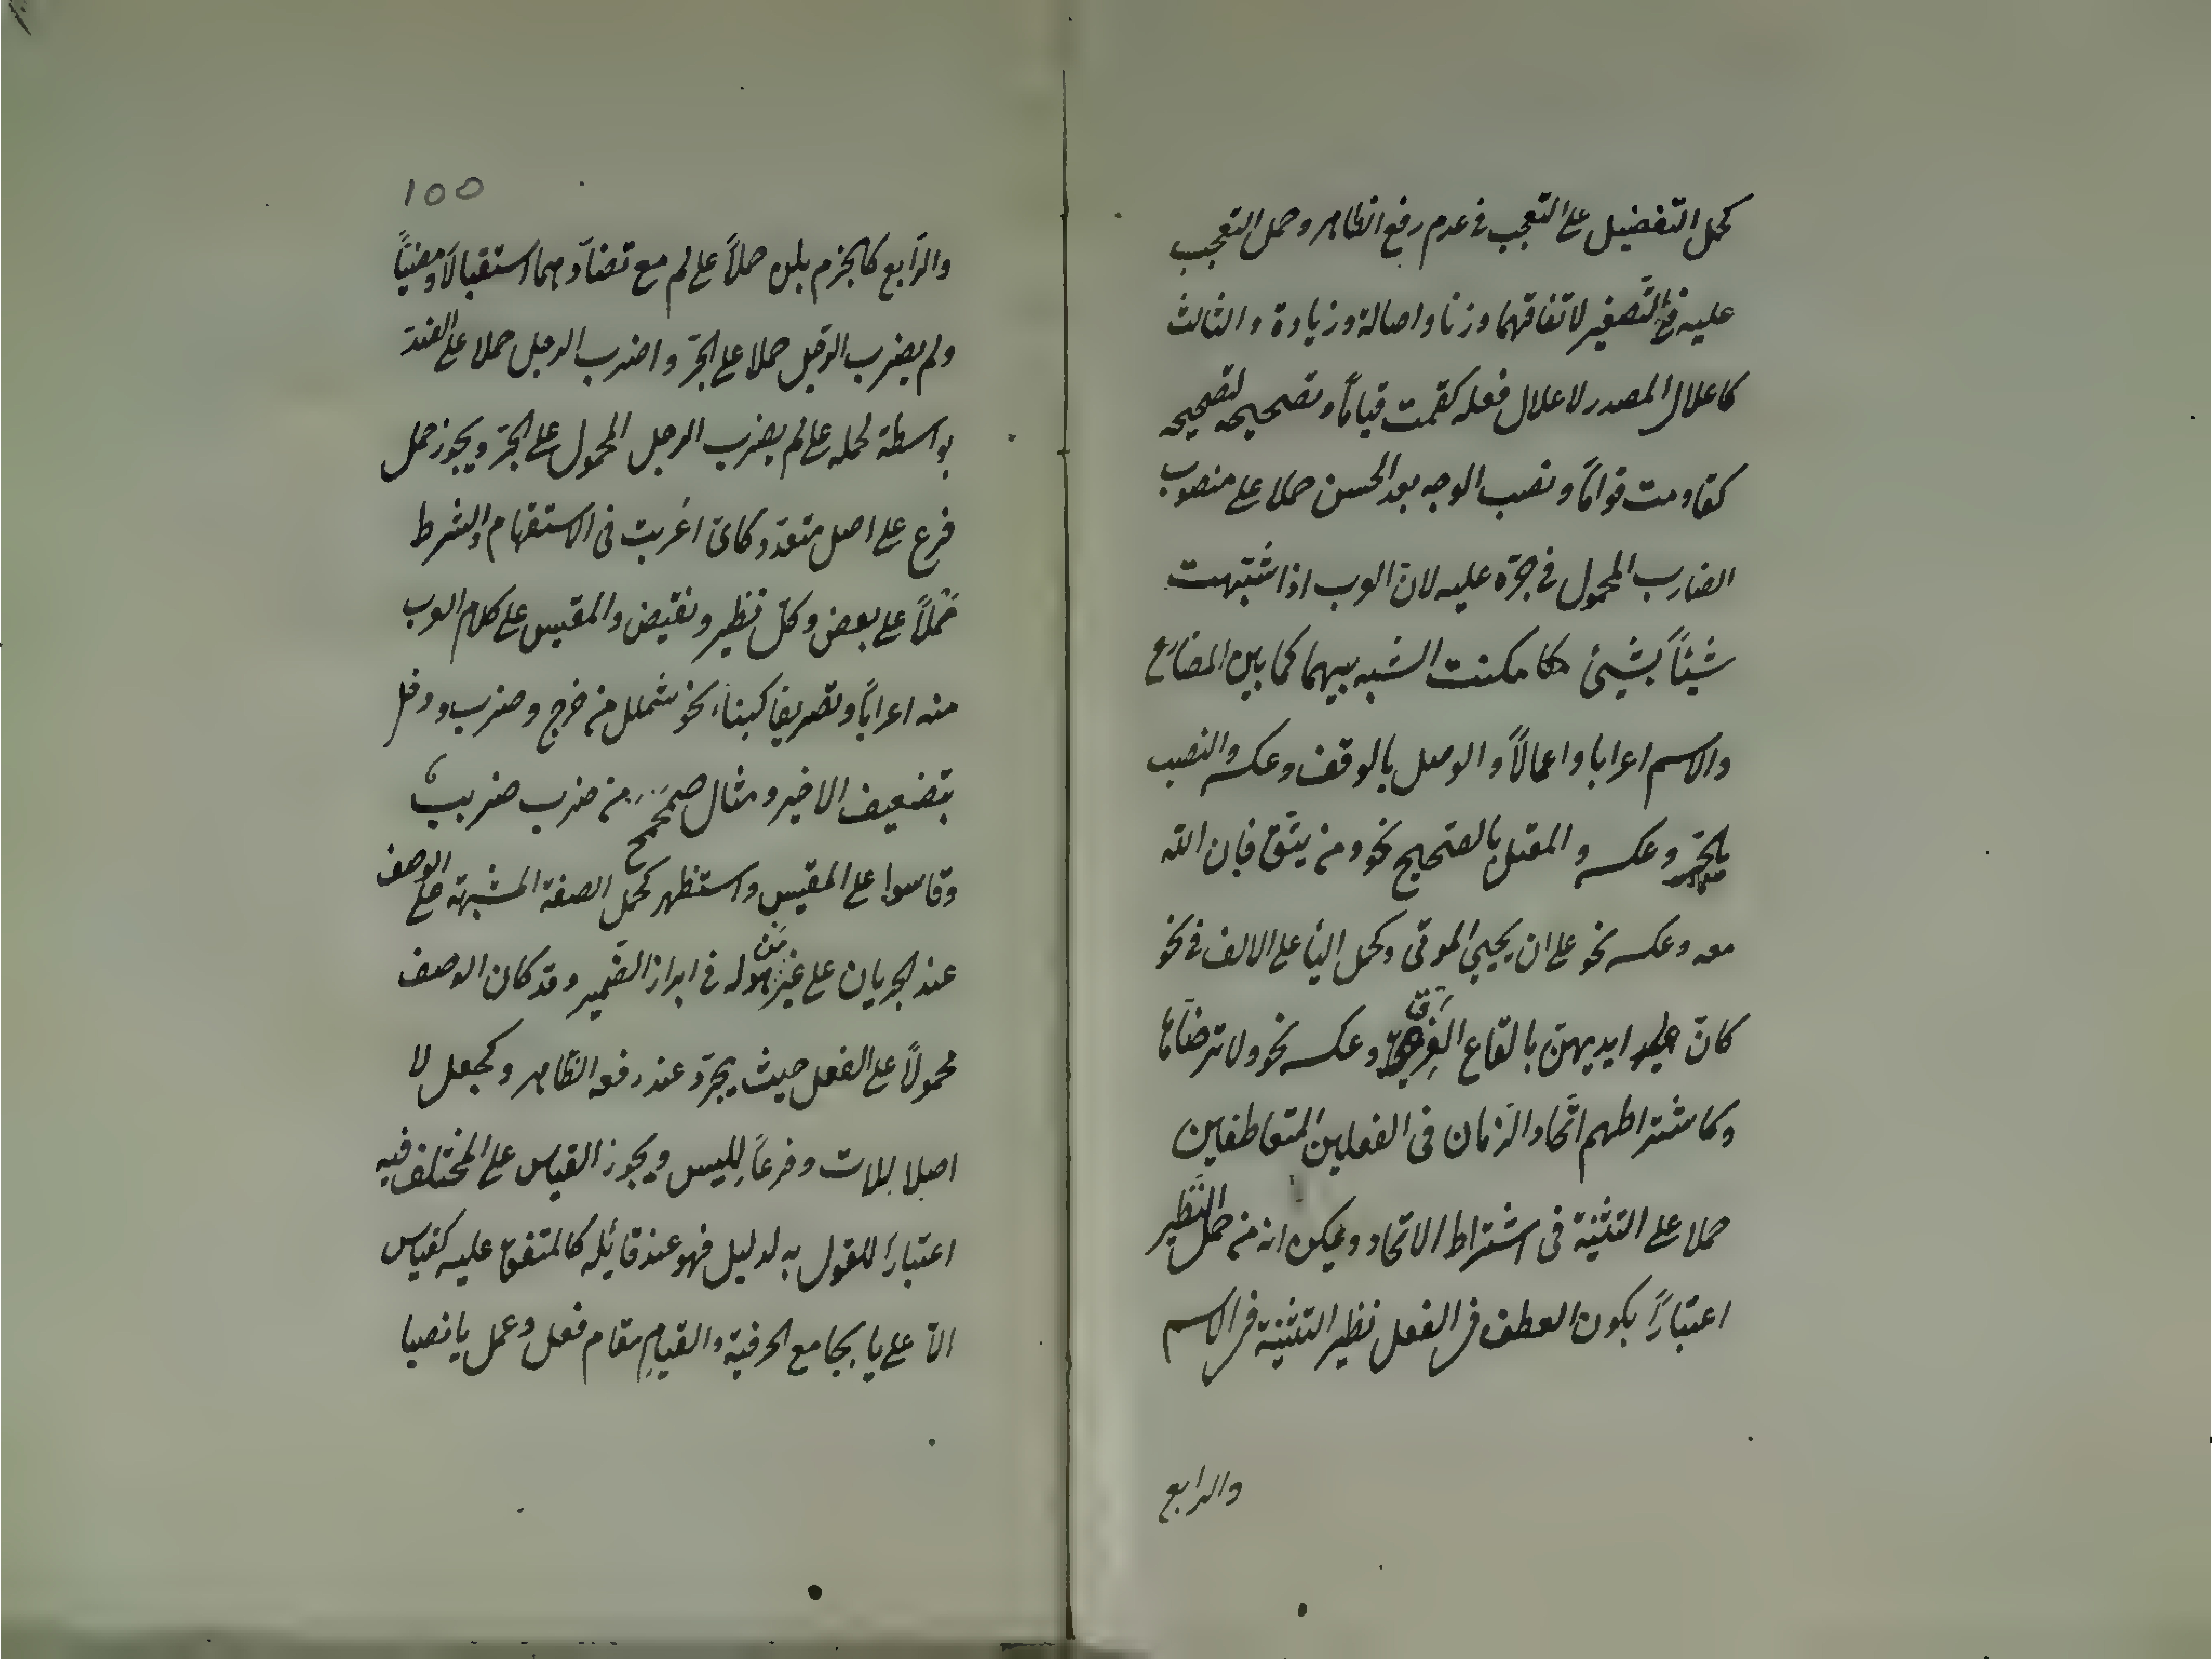 كحمل التفضيل على التعجب فى عدم رفع الظاهر وحمل التعجب
عليه فى التّصغير لاتفاقهما وزنا واصالة وزيادة والثالث
كاعلال المصدر لاعلال فعله كقمت قيامًا وتصحيحه لتصحيحه
كقاومت قوامًا ونصب الوجه بعد الحسن حملا على منصوب
الضارب المحمول فى جرّه عليه لانّ العرب اذا شبّهت
شيئًا بشيئ مكنت الشبه بينهما كما بين المضارع
والاسم اعرابا واعمالًا والوصل بالوقف وعكسه والنصب
بالجرّ وعكسه والمعتل بالصحيح نحو ومن يتّق فان اللّه
معه وعكسه نحو على ان يحيي الموتى وكحمل اليأ على الالف فى نحو
كانّ ايديهن بالقاع القرق وعكسه نحو ولا ترضّاها
وكاشتراطهم اتّحاد الزمان فى الفعلين المتعاطفين
حملا على التثنية فى اشتراط الاتحاد ويمكن انه من حمل النّظير
اعتبارًا بكون العطف فى الفعل نظير التثنية فى الاسم
والرابع
100
والرّابع كالجزم بلن حملًا على لم مع تضادّهما استقبالًا ومضيًّا
ولم يضرب الرّجل حملا على الجرّ واضرب الرجل حملا على الضدّ
بواسطة لحمله على لم يضرب الرجل المحمول على الجرّ ويجوز حمل
فرع على اصل متعدّد كاىّ اعُربت فى الاستفهام والشرط
حَمْلًا على بعض وكلّ نظير ونقيض والمقيس على كلام العرب
منه اعرابًا وتصريفا كبناء نحو شملل من خرج وضرب ودخل
بتضعيف الاخير ومثال صمحمح من ضرب ضربربٌ
وقاسوا على المقيس واستظهر كحمل الصفة المشبهة على الوصف
عند الجريان على غير مَن هو له فى ابراز الضّمير وقد كان الوصف
محمولًا على الفعل حيث يجرّد عند رفعه الظّاهر وكجعل لا
اصلا للات وفرعًا لِليس ويجوز القياس على المختلف فيه
اعتبارًا للقول به لدليل فهو عند قائله كالمتفق عليه كقياس
الّا على يا بجامع الحرفية والقيامِ مقام فعل وعمل يا نصبا